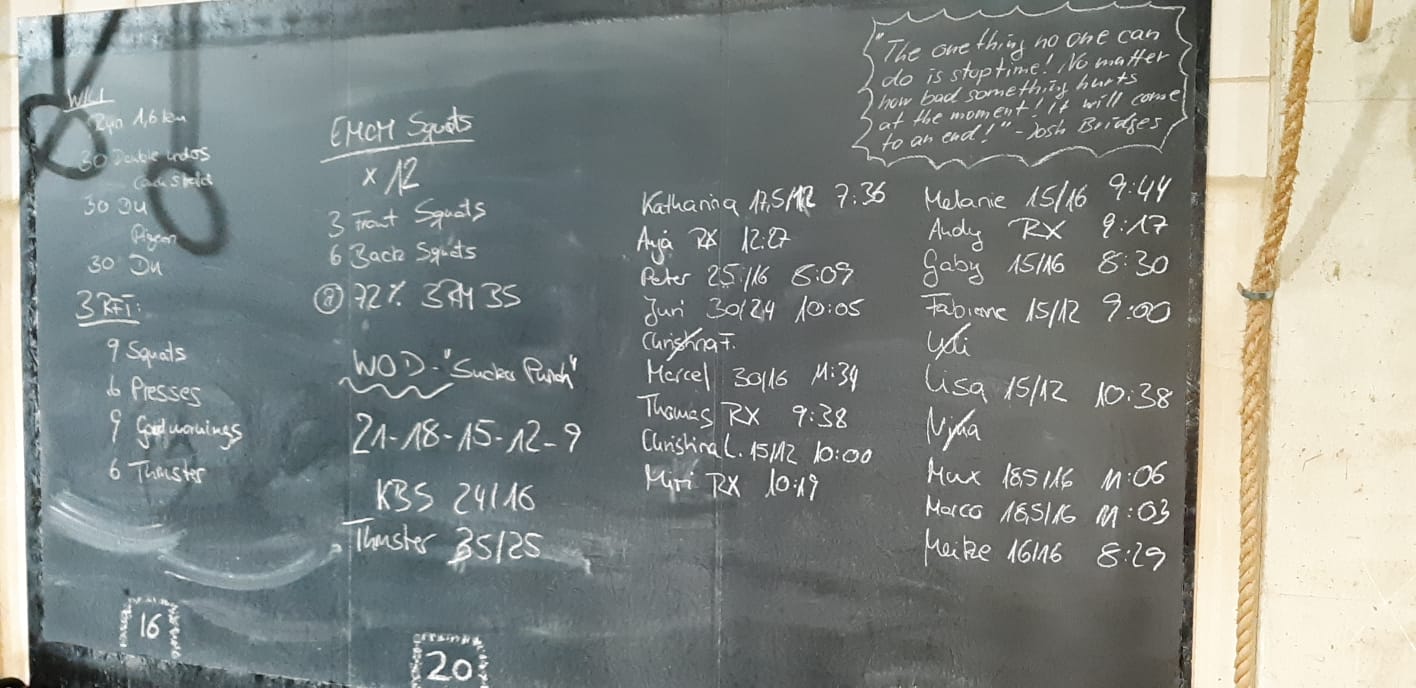 WU
Run 1,6 km
30 Double unders
Couch Stretch
30 DU
Pigeon
30 DU
3 RFT:
9 Squats
6 Presses
9 Goodmornings
6 Thruster
16
EMOM Squats
x 12
3 Front Squats
6 Back Squats
@ 72% 3RM BS
WOD - "Sucker Punch"
21-18-15-12-9
KBS 24/16
Thruster 35/25
20
Katharina 17,5/12 7:36
Anja RX 12:27
Peter 25/16 8:09
Juri 30/24 10:05
Christina F.
Marcel 30/16 11:34
Thomas RX 9:38
Christina L. 15/12 10:00
Miri RX 10:19
"The one thing no one can
do is stop time! No matter
how bad something hurts
at the moment! it will come
to an end!" - Josh Bridges
Melanie 15/16 9:44
Andy RX 9:17
Gaby 15/16 8:30
Fabienne 15/12 9:00
Uli
Lisa 15/12 10:38
Max 18,5/16 11:06
Marco 18,5/16 11:03
Meike 16/16 8:29